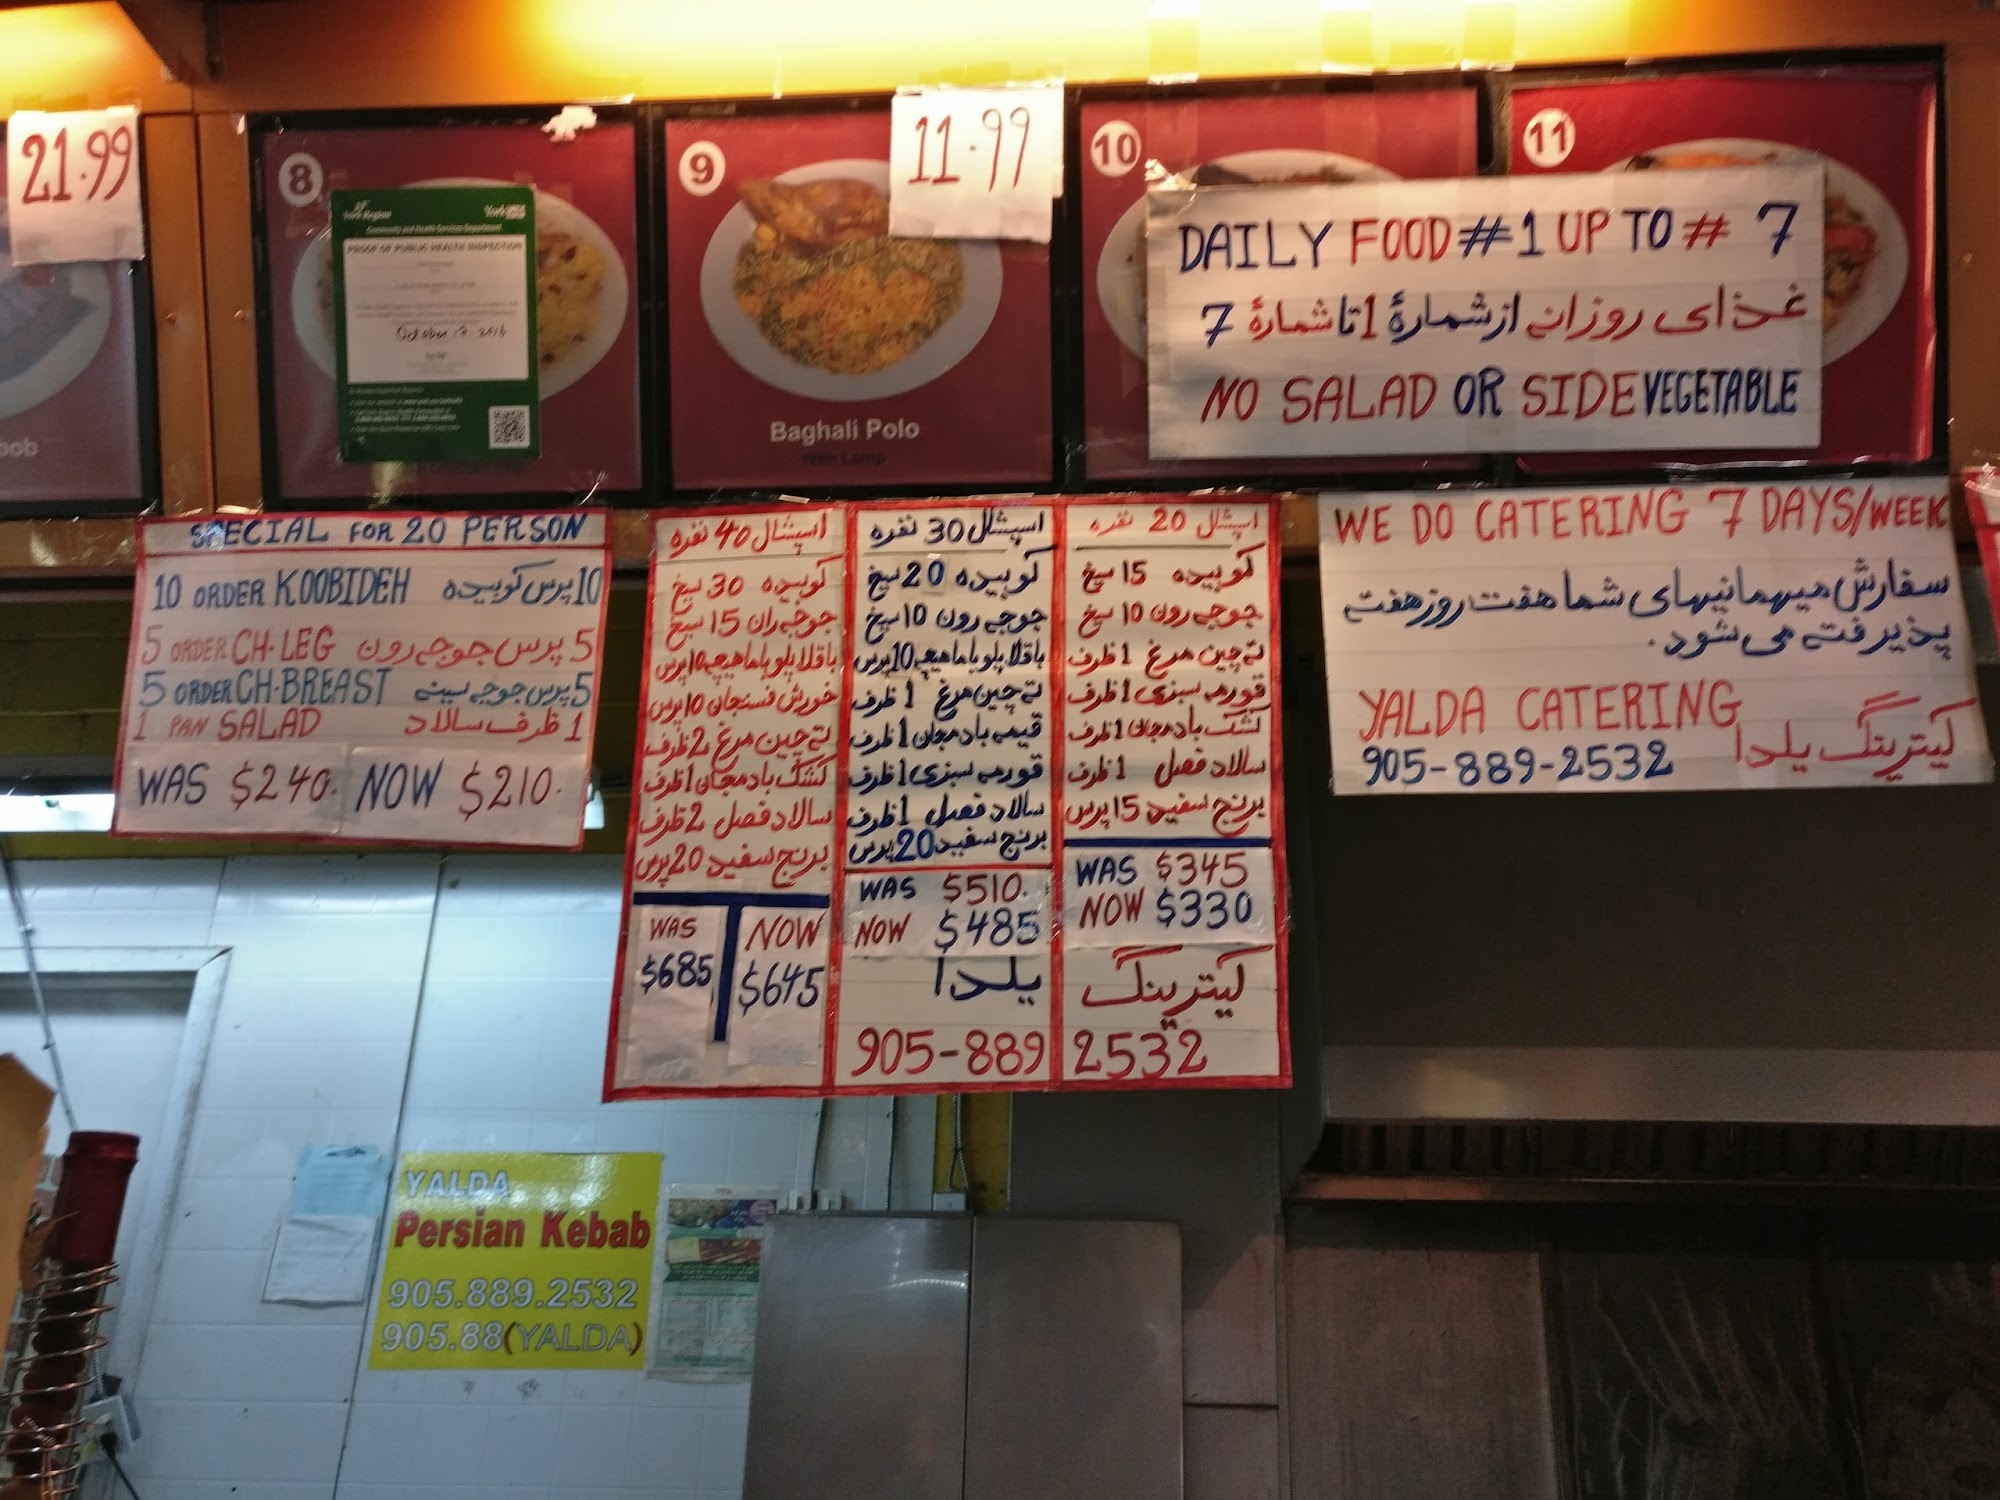 21.99
8
York Region
Community and Health Services Department
PROOF OF PUBLIC HEALTH INSPECTION
October 17, 2016
9
11.99
Baghali Polo
With Lamp
10
11
DAILY FOOD #1 UP TO # 7
غذای روزانه ازشمارهٔ 1 تا شمارهٔ 7
NO SALAD OR SIDE VEGETABLE
SPECIAL FOR 20 PERSON
10 ORDER KOOBIDEH 10 پرس کوبیده
5 ORDER CH·LEG 5 پرس جوجه رون
5 ORDER CH·BREAST 5 پرس جوجه سینه
1 PAN SALAD 1 ظرف سالاد
WAS $240. NOW $210.
اسپشال 40 نفره
کوبیده 30 سیخ
جوجه ران 15 سیخ
باقلا پلو با ماهیچه 10 پرس
خورش فسنجان 10 پرس
ته چین مرغ 2 ظرف
کشک بادمجان 1 ظرف
سالاد فصل 2 ظرف
برنج سفید 20 پرس
WAS
$685
NOW
$645
اسپشال 30 نفره
کوبیده 20 سیخ
جوجه رون 10 سیخ
باقلا پلو با ماهیچه 10 پرس
ته چین مرغ 1 ظرف
قیمه بادمجان 1 ظرف
قورمه سبزی 1 ظرف
سالاد فصل 1 ظرف
برنج سفید 20 پرس
WAS $510.
NOW $485
یلدا
905-889
اسپشال 20 نفره
کوبیده 15 سیخ
جوجه رون 10 سیخ
ته چین مرغ 1 ظرف
قورمه سبزی 1 ظرف
کشک بادمجان 1 ظرف
سالاد فصل 1 ظرف
برنج سفید 15 پرس
WAS $345
NOW $330
کیترینگ
2532
WE DO CATERING 7 DAYS/WEEK
سفارش میهمانیهای شما هفت روز هفته
پذیرفته می شود.
YALDA CATERING
کیترینگ یلدا
905-889-2532
YALDA
Persian Kebab
905.889.2532
905.88(YALDA)